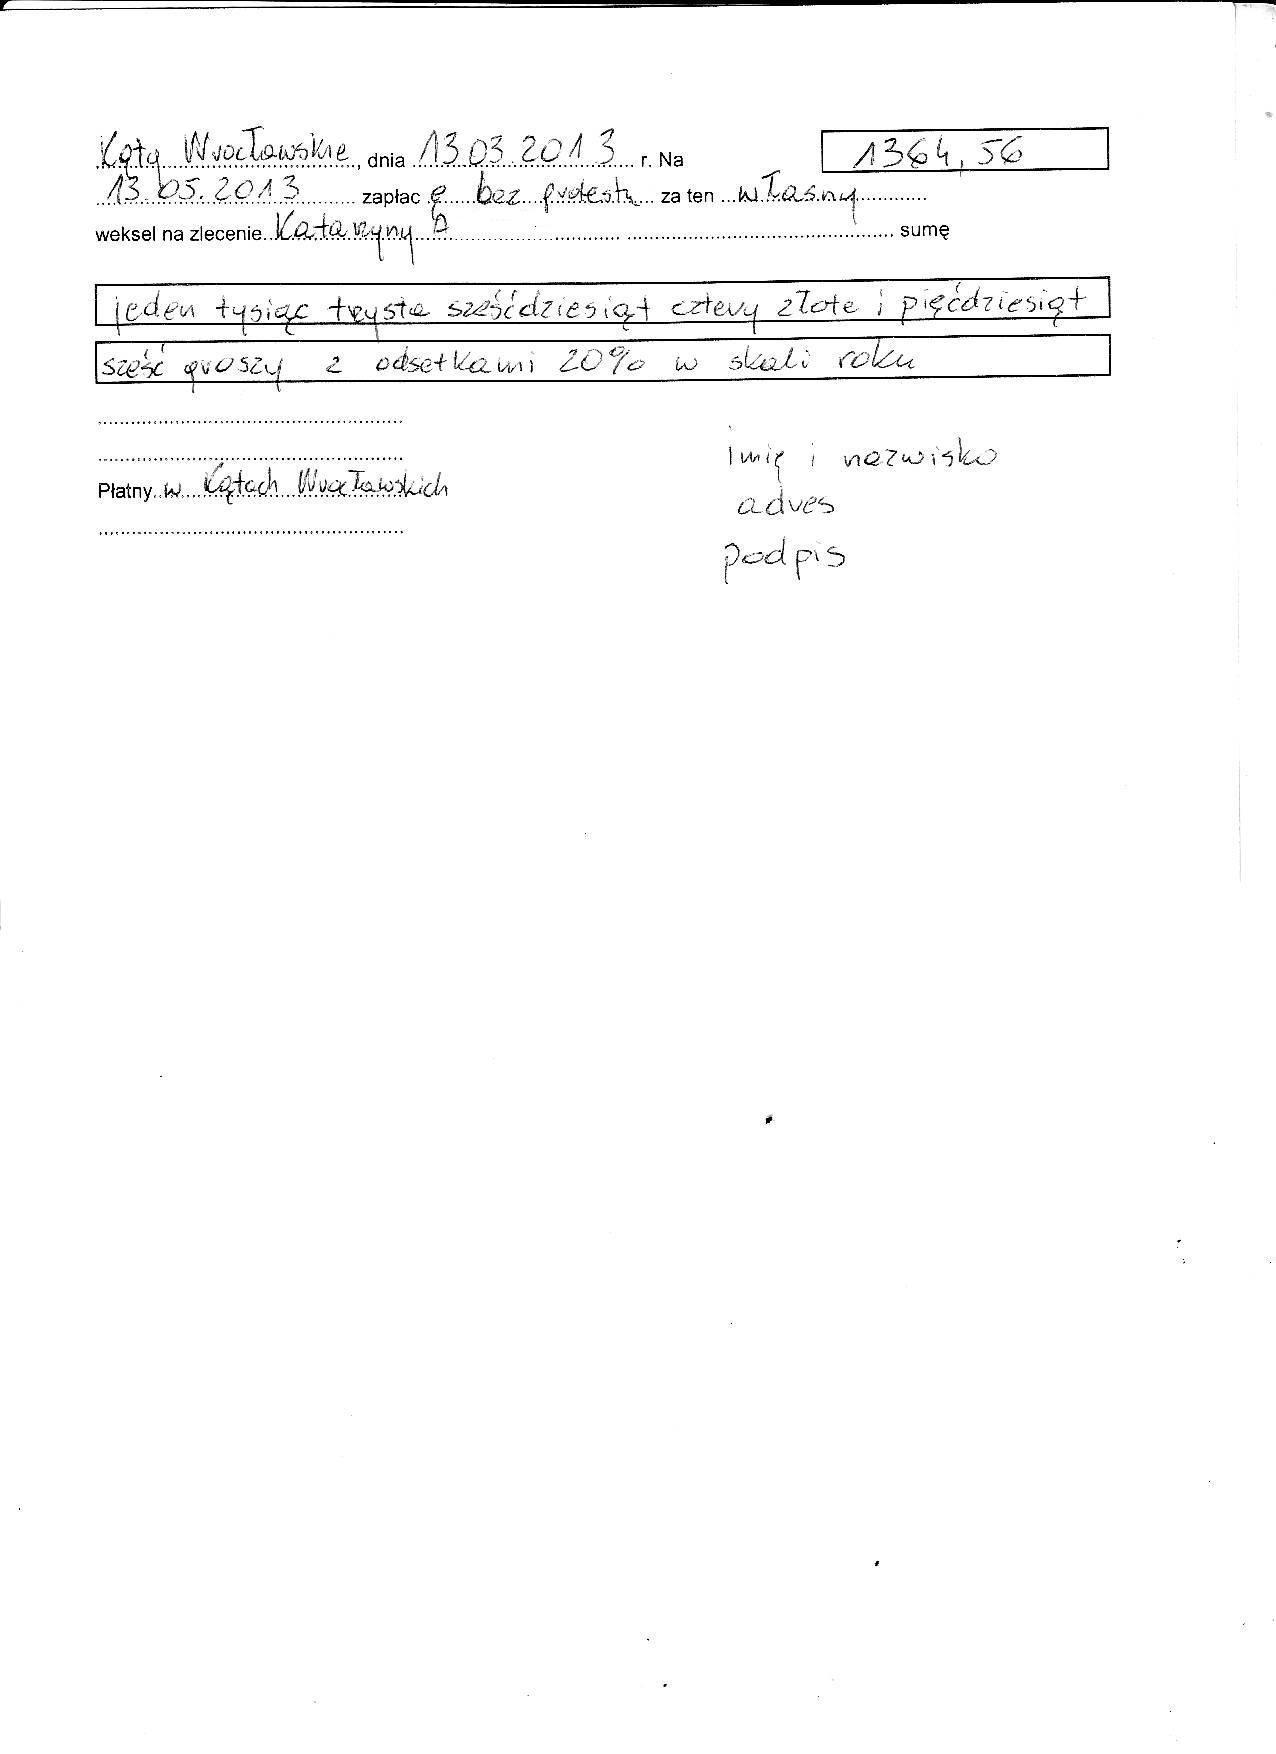 Kąty Wrocławskie, dnia 13.03.2013 r. Na 1364,56
13.05.2013 zapłacę bez protestu za ten własny
weksel na zlecenie Katarzyny A sumę
jeden tysiąc trzysta sześćdziesiąt cztery złote i pięćdziesiąt
sześć groszy z odsetkami 20% w skali roku
Płatny w Kątach Wrocławskich
imię i nazwisko
adres
podpis